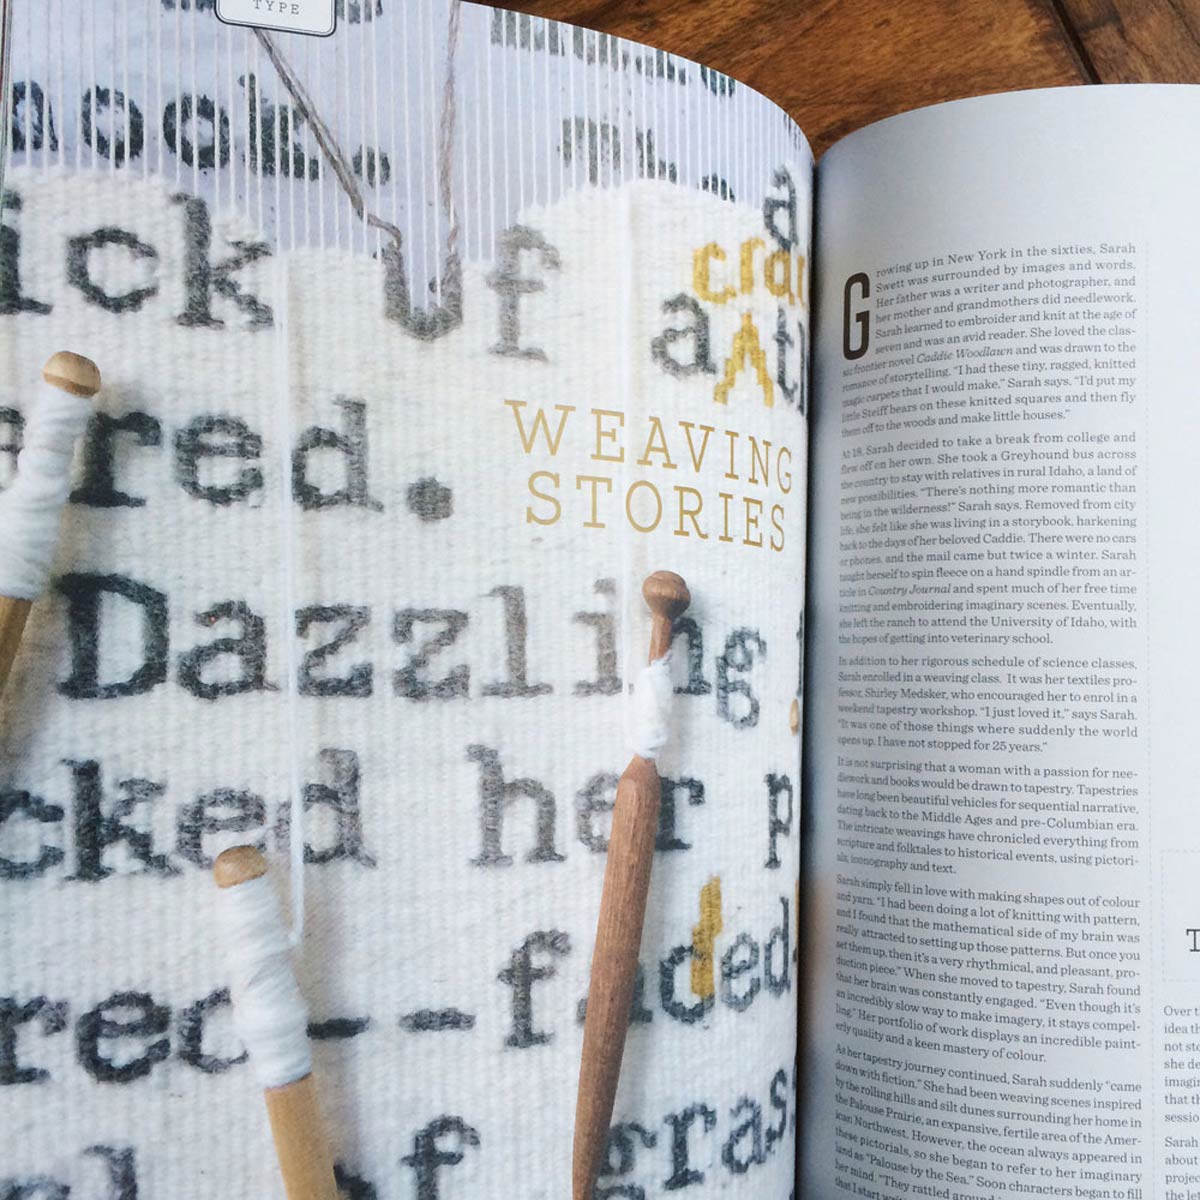 TYPE
nook.
ick of a
a crad
th
ered.
WEAVING
STORIES
Dazzling
cked her p
red--faded
of grass
Growing up in New York in the sixties, Sarah
Swett was surrounded by images and words.
Her father was a writer and photographer, and
her mother and grandmothers did needlework.
Sarah learned to embroider and knit at the age of
seven and was an avid reader. She loved the clas-
sic frontier novel Caddie Woodlawn and was drawn to the
romance of storytelling. “I had these tiny, ragged, knitted
magic carpets that I would make,” Sarah says. “I’d put my
little Steiff bears on these knitted squares and then fly
them off to the woods and make little houses.”
At 18, Sarah decided to take a break from college and
flew off on her own. She took a Greyhound bus across
the country to stay with relatives in rural Idaho, a land of
new possibilities. “There’s nothing more romantic than
being in the wilderness!” Sarah says. Removed from city
life, she felt like she was living in a storybook, harkening
back to the days of her beloved Caddie. There were no cars
or phones, and the mail came but twice a winter. Sarah
taught herself to spin fleece on a hand spindle from an ar-
ticle in Country Journal and spent much of her free time
knitting and embroidering imaginary scenes. Eventually,
she left the ranch to attend the University of Idaho, with
the hopes of getting into veterinary school.
In addition to her rigorous schedule of science classes,
Sarah enrolled in a weaving class. It was her textiles pro-
fessor, Shirley Medsker, who encouraged her to enrol in a
weekend tapestry workshop. “I just loved it,” says Sarah.
“It was one of those things where suddenly the world
opens up. I have not stopped for 25 years.”
It is not surprising that a woman with a passion for nee-
dlework and books would be drawn to tapestry. Tapestries
have long been beautiful vehicles for sequential narrative,
dating back to the Middle Ages and pre-Columbian era.
The intricate weavings have chronicled everything from
scripture and folktales to historical events, using pictori-
als, iconography and text.
Sarah simply fell in love with making shapes out of colour
and yarn. “I had been doing a lot of knitting with pattern,
and I found that the mathematical side of my brain was
really attracted to setting up those patterns. But once you
set them up, then it’s a very rhythmical, and pleasant, pro-
duction piece.” When she moved to tapestry, Sarah found
that her brain was constantly engaged. “Even though it’s
an incredibly slow way to make imagery, it stays compel-
ling.” Her portfolio of work displays an incredible paint-
erly quality and a keen mastery of colour.
As her tapestry journey continued, Sarah suddenly “came
down with fiction.” She had been weaving scenes inspired
by the rolling hills and silt dunes surrounding her home in
the Palouse Prairie, an expansive, fertile area of the Amer-
ican Northwest. However, the ocean always appeared in
these pictorials, so she began to refer to her imaginary
land as “Palouse by the Sea.” Soon characters began to fill
her mind. “They rattled around
that I start
T
Over t
idea th
not sto
she de
imagin
that th
sessio
Sarah
about
projec
the let